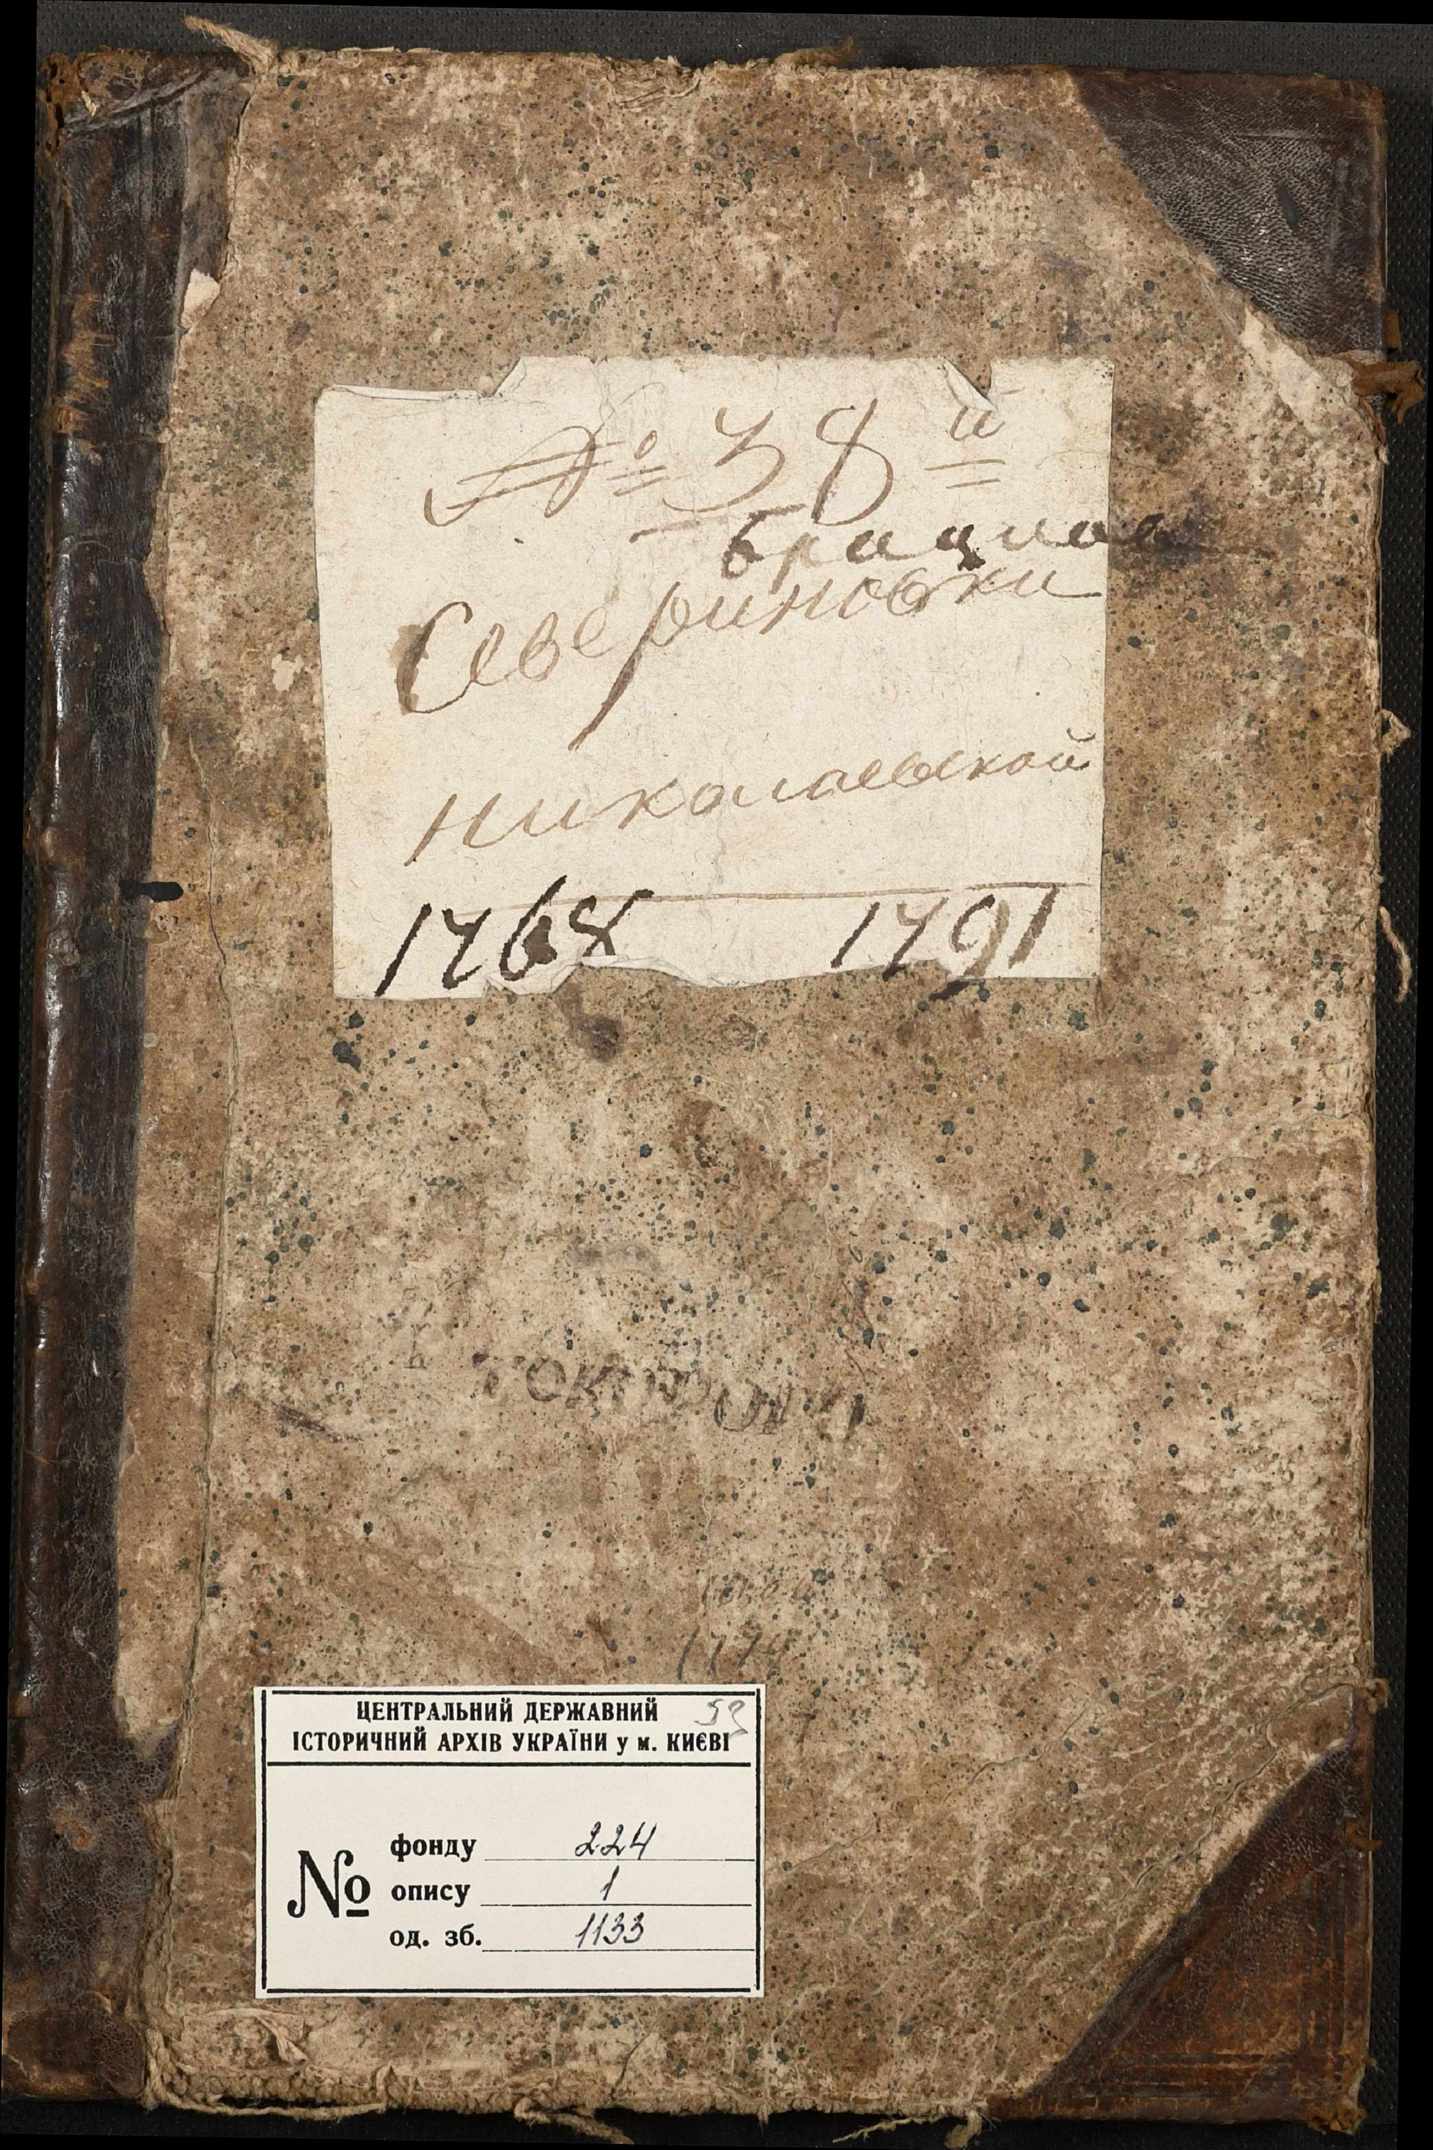 № 38й
Севериновки
николаевской
1768 1791
1774
ЦЕНТРАЛЬНИЙ ДЕРЖАВНИЙ
ІСТОРИЧНИЙ АРХІВ УКРАЇНИ у м. КИЄВІ
№
фонду 224
опису 1
од. зб. 1133